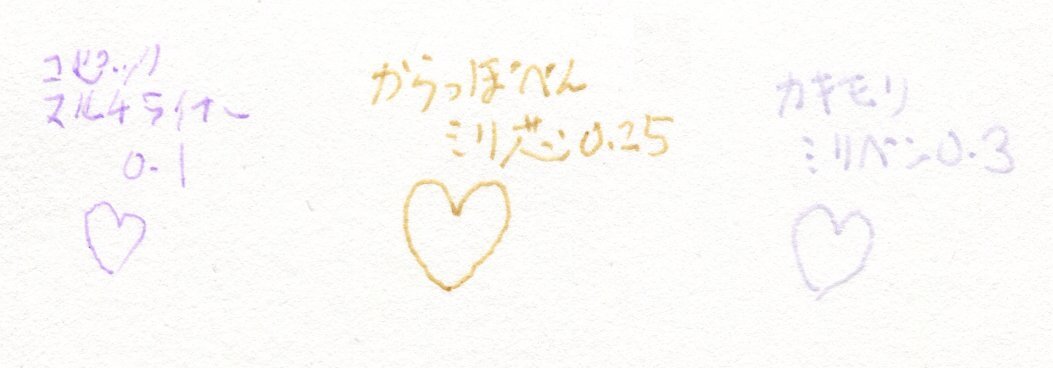 コピック
マルチライナー
0.1
からっぽぺん
ミリ芯0.25
カキモリ
ミリペン0.3